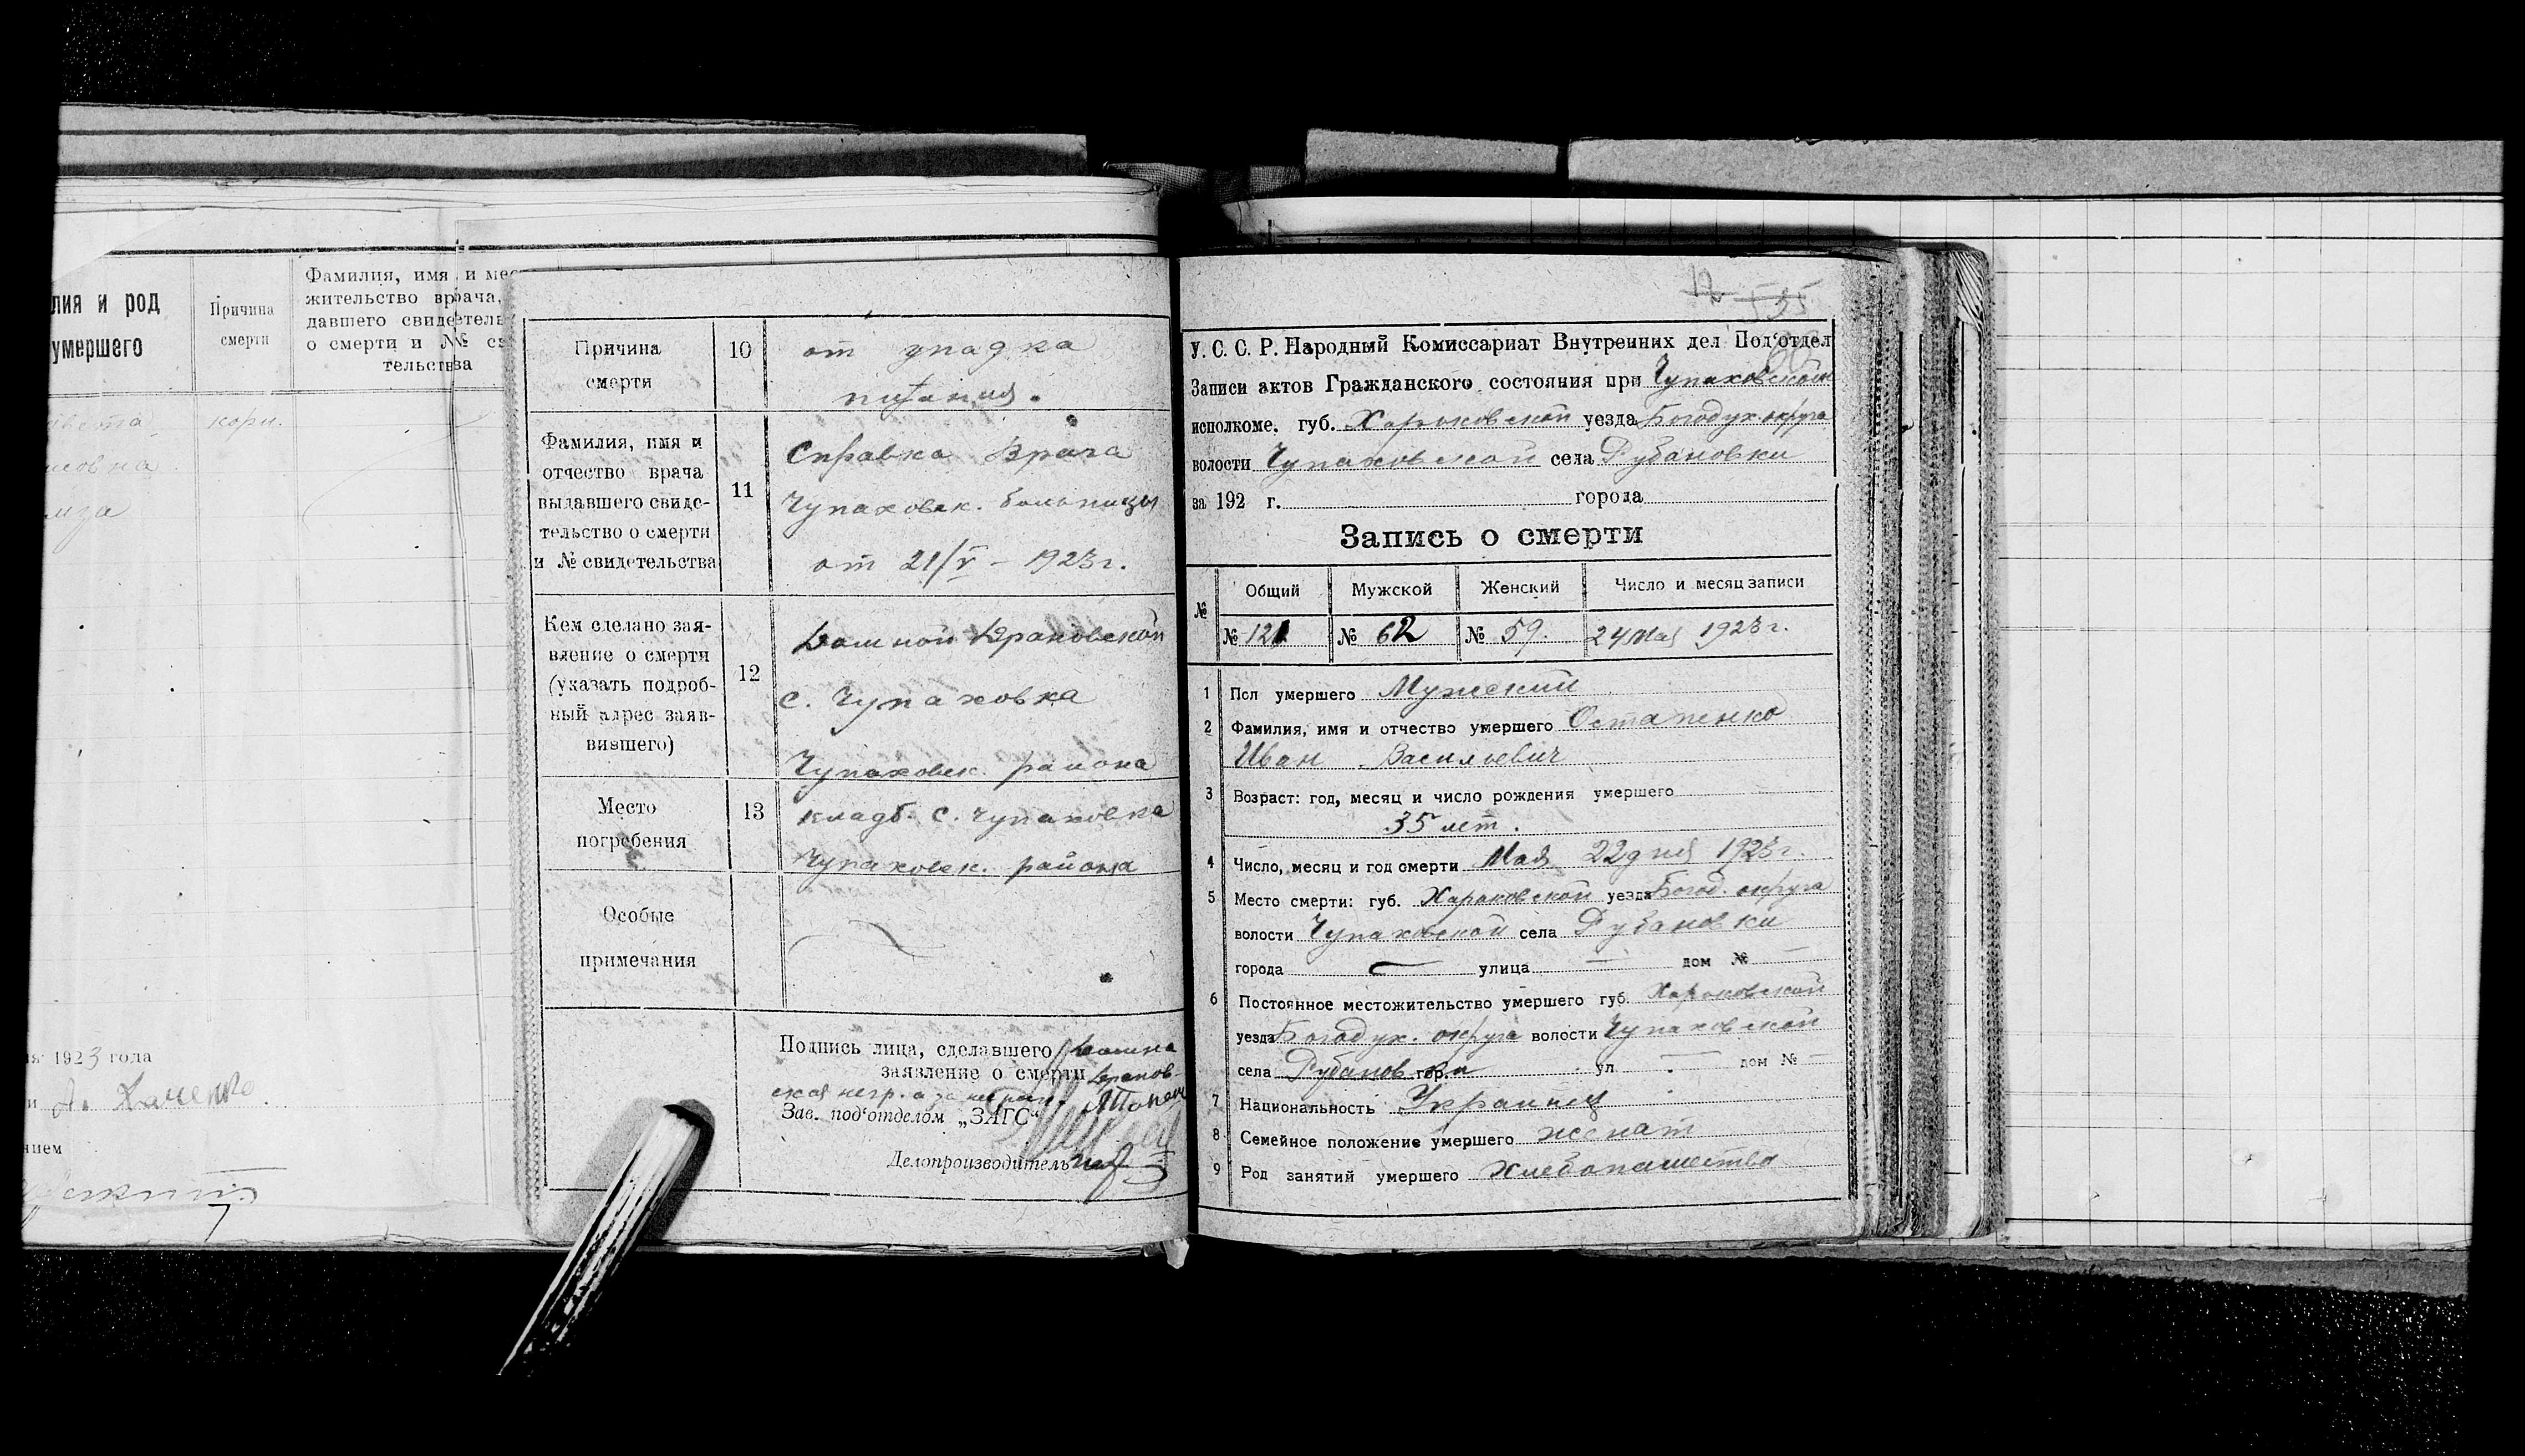 лия и род
умершего
Причина
смерти
Фамилия, имя и мес
жительство врача,
давшего свидетель
о смерти и №№ св
тельства
1923 года
7
Причина
смерти
10
от упадка
питания.
Фамилия, имя и
отчество врача
выдавшего свиде-
тельство о смерти
и № свидетельства
11
Справка Врача
Чупаховск. больницы
от 21/V - 1923 г.
Кем сделано зая-
вление о смерти
(указать подроб-
ный адрес заяв-
вившего)
12
с. Чупаховка
Чупаховск. района
Место
погребения
13
кладб. с. Чупаховка
Чупаховск. района
Особые
примечания
Подпись лица, сделавшего
заявление о смерти
Зав. под'отделом „ЗАГС"
Делопроизводитель
12 535
У. С. С. Р. Народный Комиссариат Внутренних дел Под'отдел
Записи актов Гражданского состояния при Чупаховском
исполкоме. губ. Харьковской уезда Богодух. округа
волости Чупаховской села Рубановки
за 192 г. города
Запись о смерти
№ Общий Мужской Женский Число и месяц записи
№ 121 № 62 № 59. 24 Мая 1923 г.
1 Пол умершего Мужской
2 Фамилия, имя и отчество умершего Остапенко
Иван Васильевич
3 Возраст: год, месяц и число рождения умершего
35 лет.
4 Число, месяц и год смерти Мая 22 дня 1923 г.
5 Место смерти: губ. Харьковской уезда Богод. округа
волости Чупаховской села Рубановки
города — улица — дом № —
6 Постоянное местожительство умершего губ. Харьковской
уезда Богодух. округа волости Чупаховской
села Рубановки гор. ул — дом № —
7 Национальность Украинец
8 Семейное положение умершего женат
9 Род занятий умершего Хлебопашество